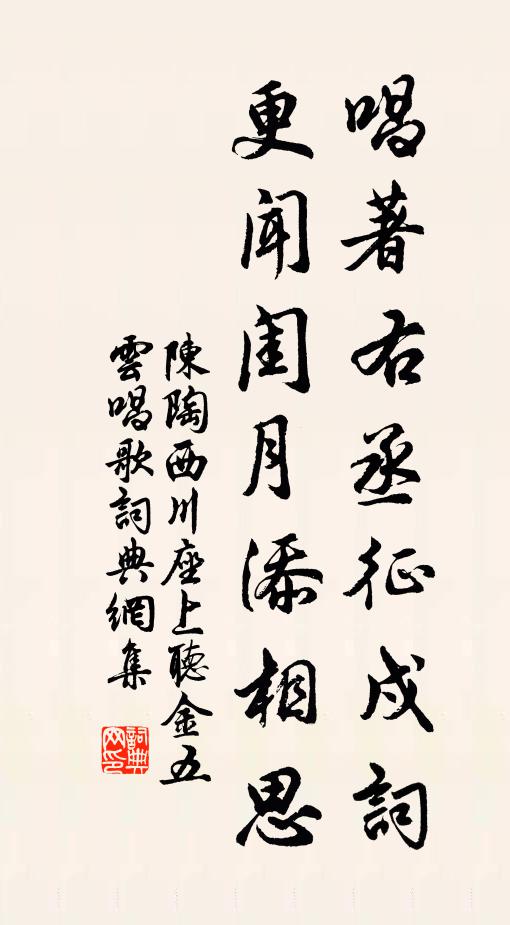 唱著右丞征戍詞
更聞閨月添相思
陳陶西川座上聽金五
雲唱歌詞典網集
詞典網印